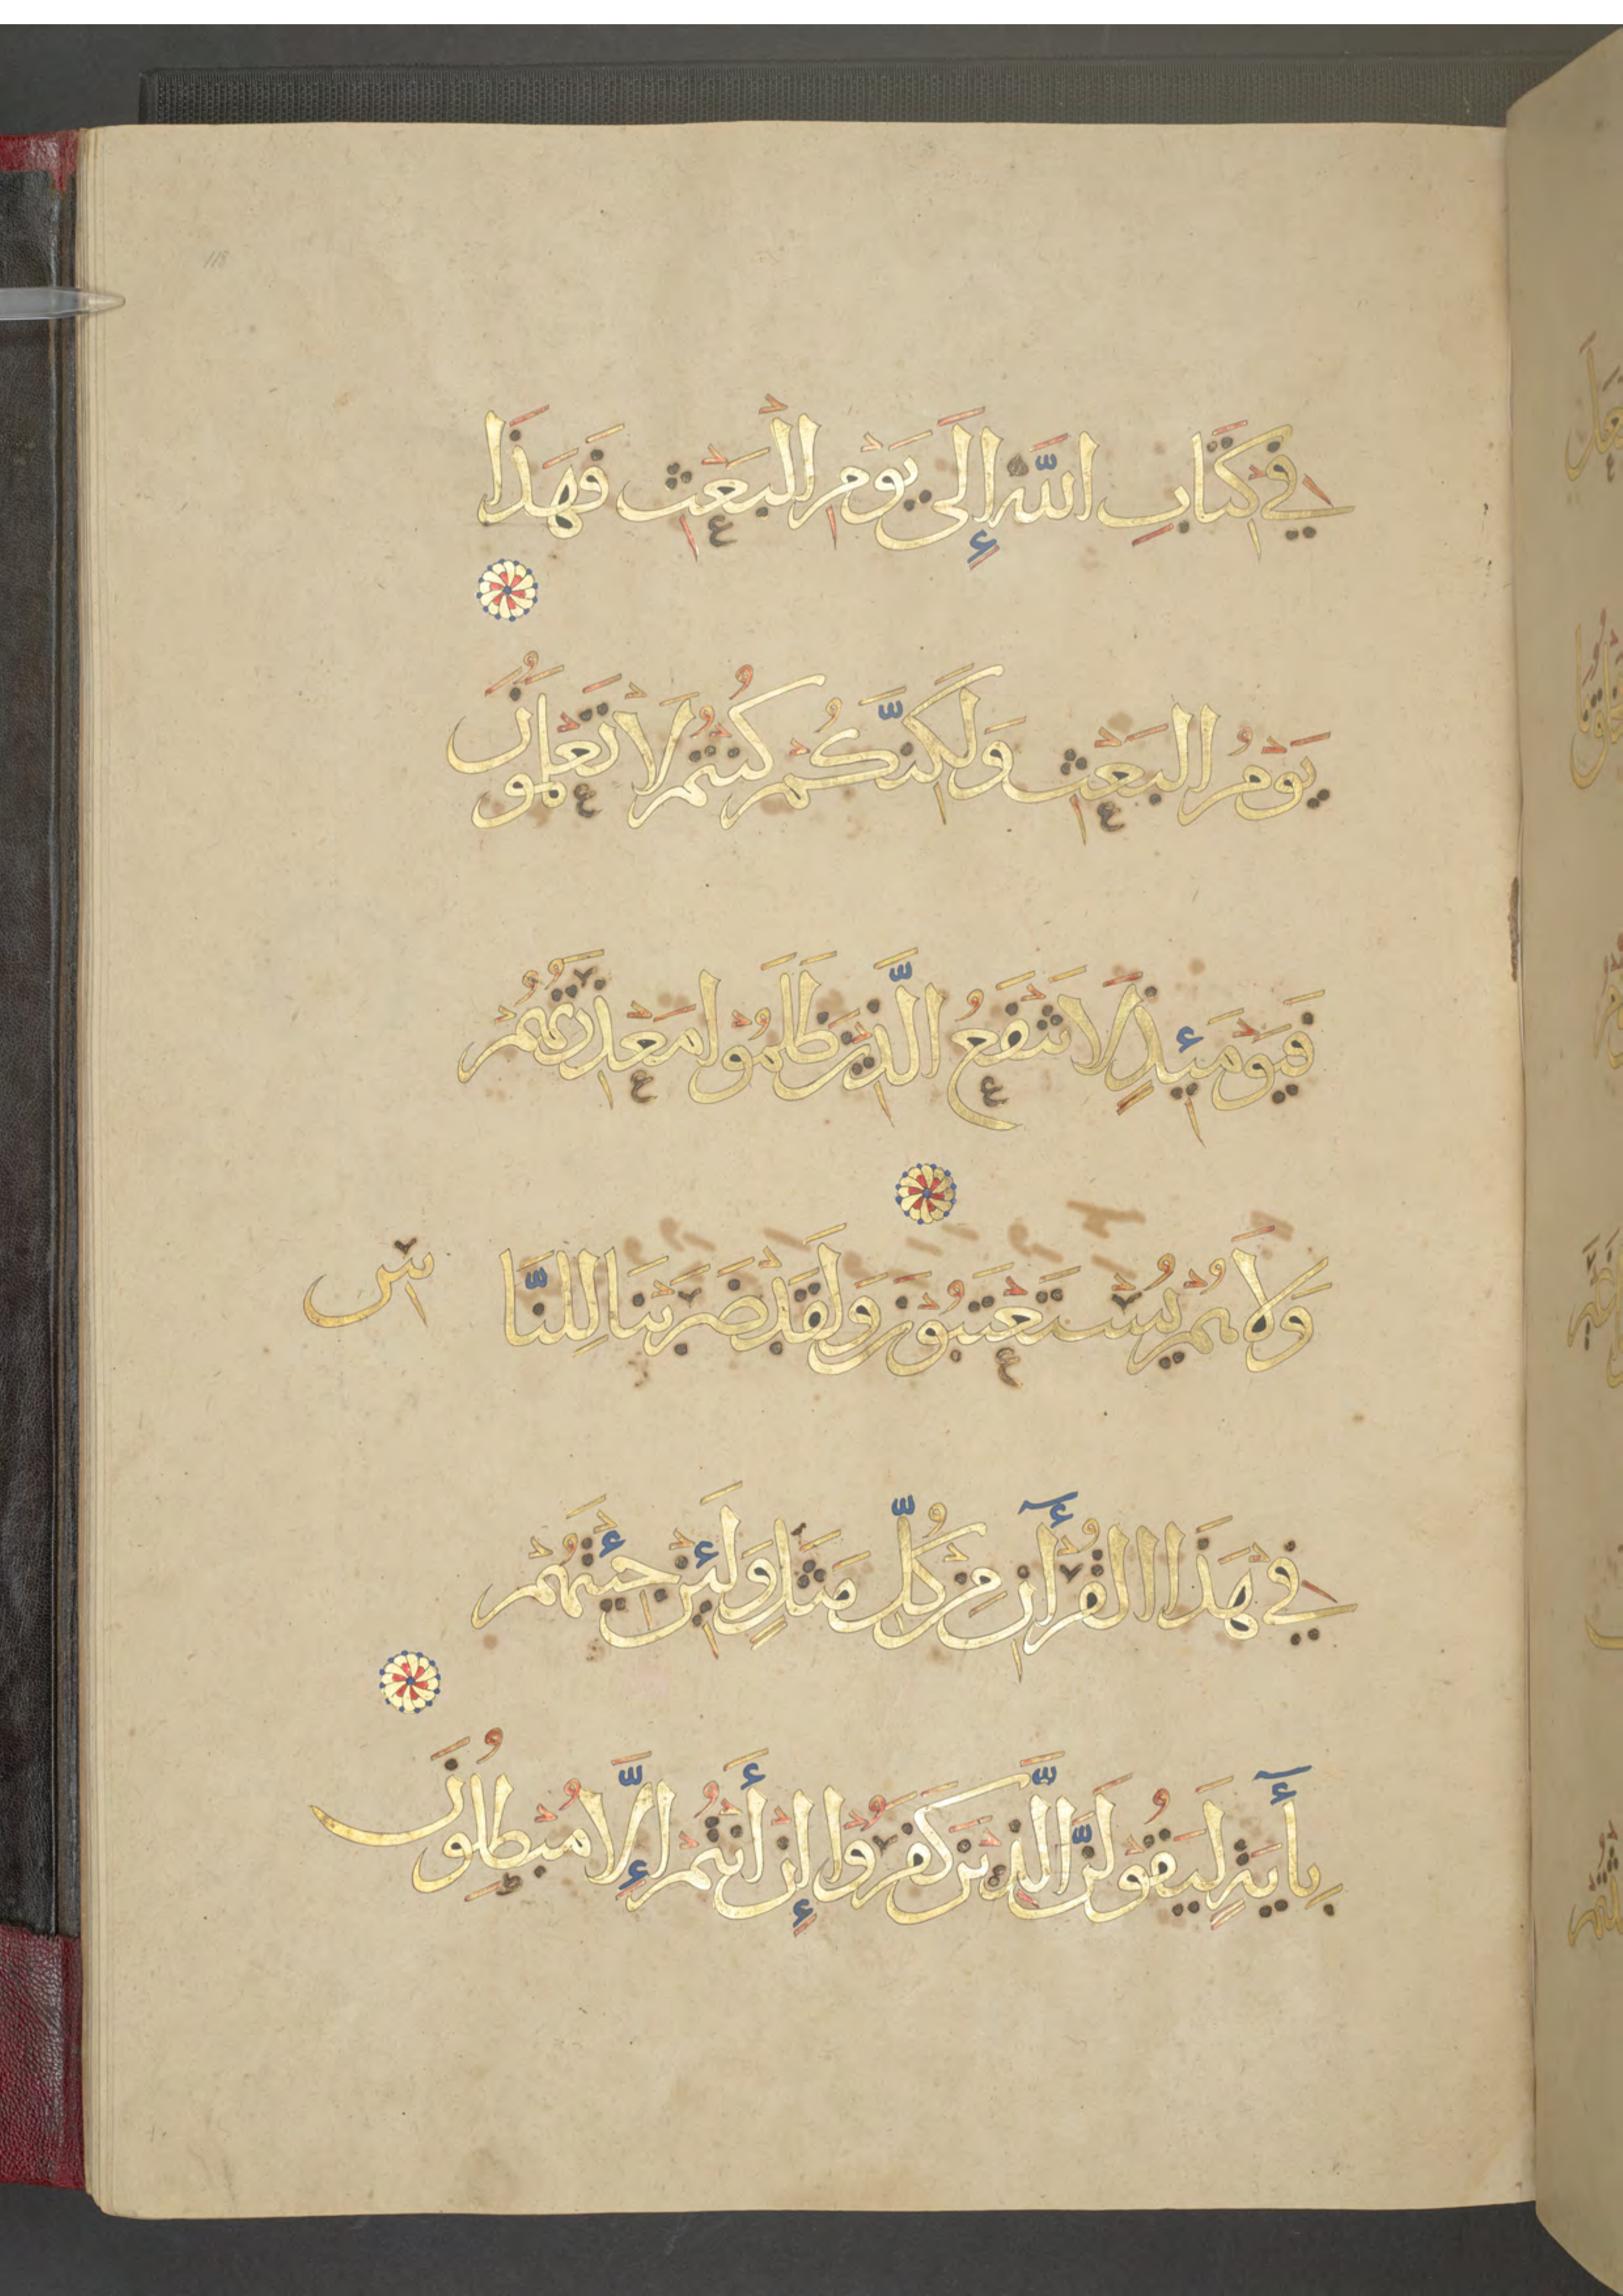 118
فِي كِتَابِ اللَّهِ إِلَى يَوْمِ الْبَعْثِ فَهَذَا
يَوْمُ الْبَعْثِ وَلَكِنَّكُمْ كُنْتُمْ لَا تَعْلَمُونَ
فَيَوْمَئِذٍ لَا تَنْفَعُ الَّذِينَ ظَلَمُوا مَعْذِرَتُهُمْ
وَلَا هُمْ يُسْتَعْتَبُونَ وَلَقَدْ ضَرَبْنَا لِلنَّا سِ
فِي هَذَا الْقُرْأٓنِ مِنْ كُلِّ مَثَلٍ وَلَئِنْ جِئْتَهُمْ
بِأٓيَةٍ لَيَقُولَنَّ الَّذِينَ كَفَرُوا إِنْ أَنْتُمْ إِلَّا مُبْطِلُونَ